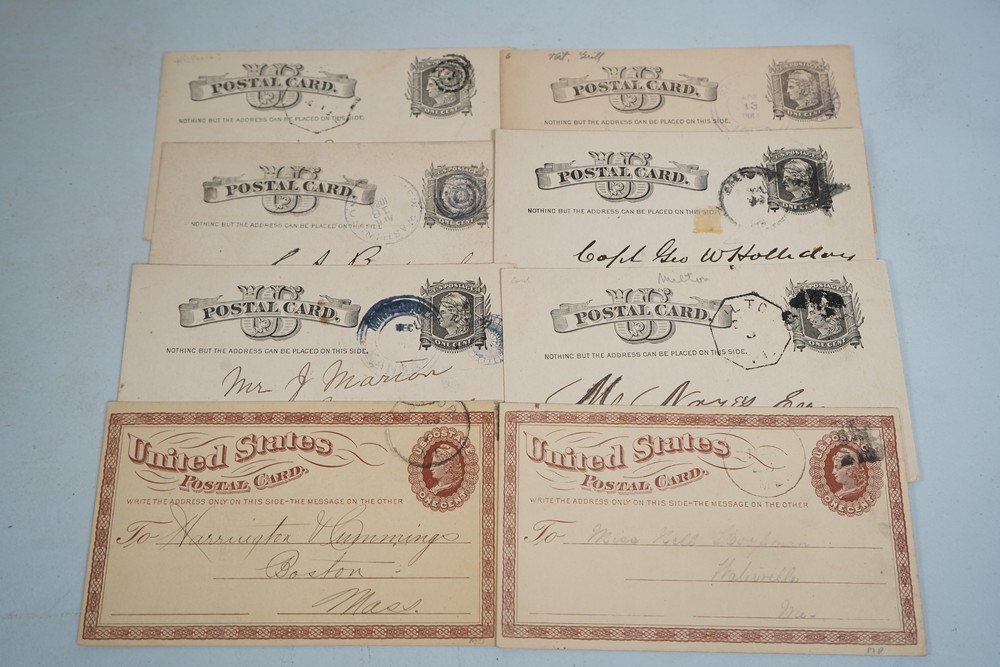 US
POSTAL CARD.
NOTHING BUT THE ADDRESS CAN BE PLACED ON THIS SIDE.
ONE CENT
US
POSTAL CARD.
NOTHING BUT THE ADDRESS CAN BE PLACED ON THIS SIDE.
ONE CENT
US
POSTAL CARD.
NOTHING BUT THE ADDRESS CAN BE PLACED ON THIS SIDE.
ONE CENT
US
POSTAL CARD.
NOTHING BUT THE ADDRESS CAN BE PLACED ON THIS SIDE.
ONE CENT
Capt Geo W Holliday
US
POSTAL CARD.
NOTHING BUT THE ADDRESS CAN BE PLACED ON THIS SIDE.
U.S. POSTAGE
ONE CENT
Mr J Marion
Milton
US
POSTAL CARD.
NOTHING BUT THE ADDRESS CAN BE PLACED ON THIS SIDE.
ONE CENT
United States
POSTAL CARD.
WRITE THE ADDRESS ONLY ON THIS SIDE-THE MESSAGE ON THE OTHER
U.S. POSTAGE
ONE CENT
To Harrington & Cummings
Boston
Mass.
United States
POSTAL CARD.
WRITE THE ADDRESS ONLY ON THIS SIDE-THE MESSAGE ON THE OTHER
ONE CENT
To Miss
Me.